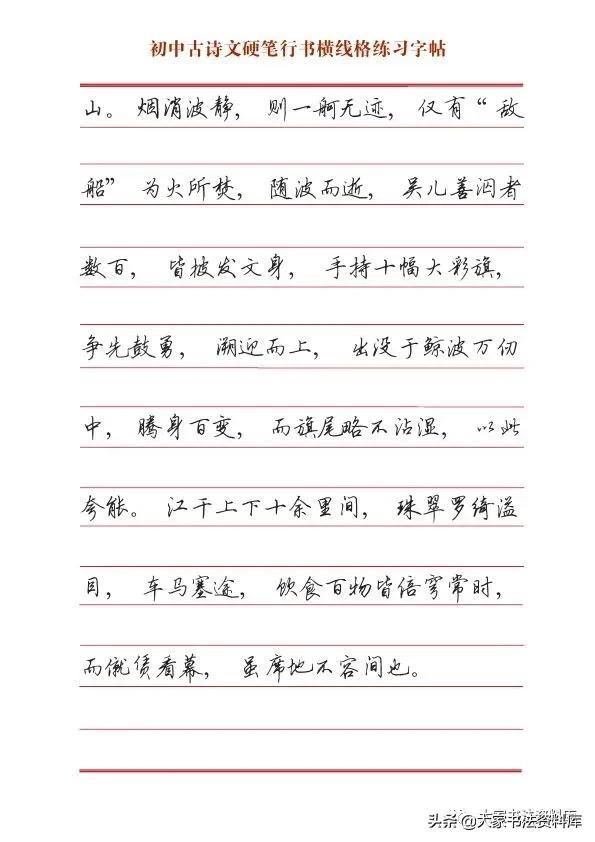 初中古诗文硬笔行书横线格练习字帖
山。烟消波静，则一舸无迹，仅有“敌
船”为火所焚，随波而逝，吴儿善泅者
数百，皆披发文身，手持十幅大彩旗，
争先鼓勇，溯迎而上，出没于鲸波万仞
中，腾身百变，而旗尾略不沾湿，以此
夸能。江干上下十余里间，珠翠罗绮溢
目，车马塞途，饮食百物皆倍穹常时，
而僦赁看幕，虽席地不容间也。
大家书法资料库
头条@大家书法资料库